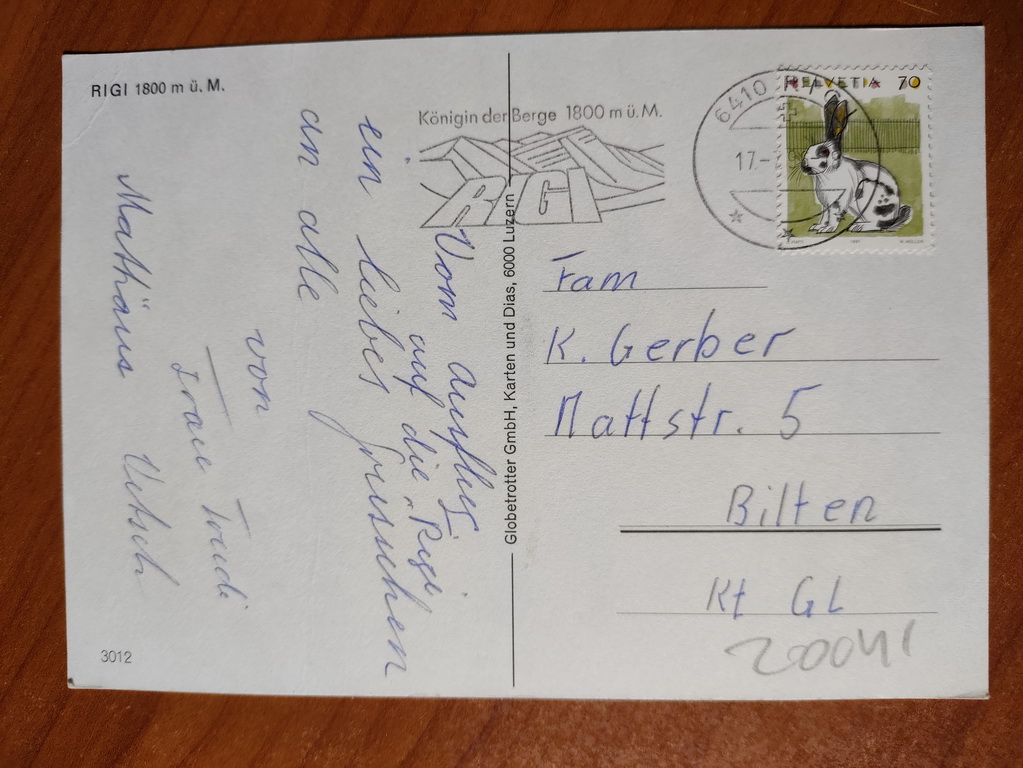 RIGI 1800 m ü. M.
Königin der Berge 1800 m ü. M.
RIGI
6410
17.-
HELVETIA 70
Vom ausflug
auf die "Rigi
ein liebes Grüsschen
an alle
von
Trudi
Mathäus Vetsch
Globetrotter GmbH, Karten und Dias, 6000 Luzern
Fam
K. Gerber
Mattstr. 5
Bilten
Kt GL
3012